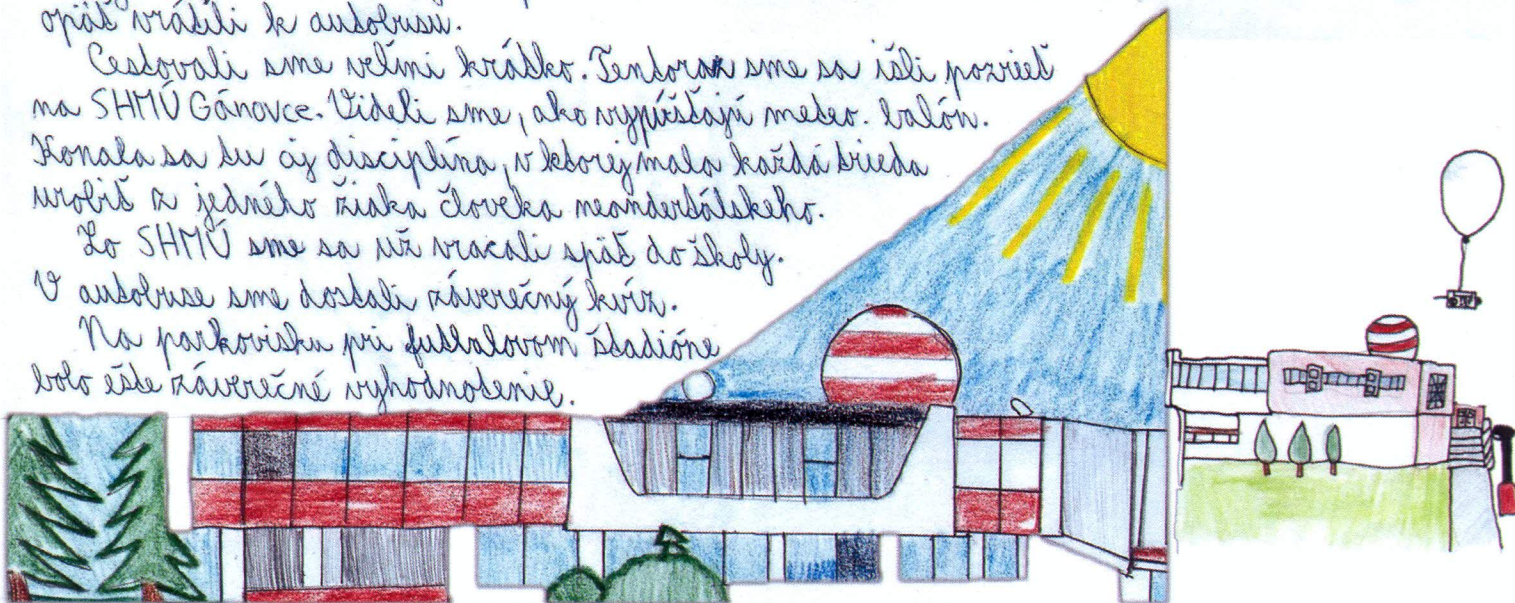 opäť vrátili k autobusu.
Cestovali sme veľmi krátko. Tentoraz sme sa išli pozrieť
na SHMÚ Gánovce. Videli sme, ako vypúšťajú meteo. balón.
Konala sa tu aj disciplína, v ktorej mala každá trieda
urobiť z jedného žiaka človeka neandertálskeho.
Zo SHMÚ sme sa už vracali späť do školy.
V autobuse sme dostali záverečný kvíz.
Na parkovisku pri futbalovom štadióne
bolo ešte záverečné vyhodnotenie.